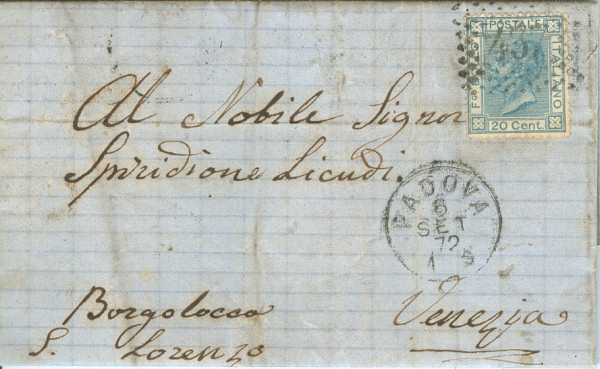 POSTALE
ITALIANO
20 Cent.
Al Nobile Signor
Spiridione Licudi.
PADOVA
6
SET
72
Borgolocco
S. Lorenzo
Venezia